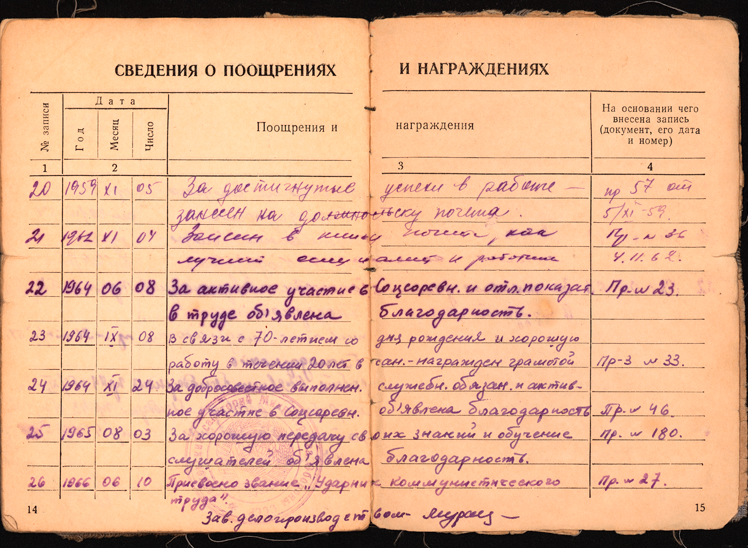 СВЕДЕНИЯ О ПООЩРЕНИЯХ И НАГРАЖДЕНИЯХ
№ записи
Дата
Год
Месяц
Число
Поощрения и награждения
На основании чего
внесена запись
(документ, его дата
и номер)
1 2 3 4
20 1959 XI 05 За достигнутые успехи в работе — пр 57 от
занесен на почета. 5/XI-59.
21 1962 XI 04 Занесен в книгу почета, как Пр. № 36
лучший и работник 4.11.62.
22 1964 06 08 За активное участие в Соцсоревн. и отл. показат. Пр. № 23.
в труде об'явлена благодарность.
23 1964 IX 08 В связи с 70-летием со дня рождения и хорошую
работу в течении 20 лет в сан. - награжден грамотой Пр-з № 33.
24 1964 XI 24 За добросовестное выполнен. служебн. обязан. и актив-
ное участие в Соцсоревн. об'явлена благодарность Пр. № 46.
25 1965 08 03 За хорошую передачу своих знаний и обучение Пр. № 180.
слушателей об'явлена благодарность.
26 1966 06 10 Присвоено звание „Ударник коммунистического Пр. № 27.
труда".
Зав. делопроизводством
14
15